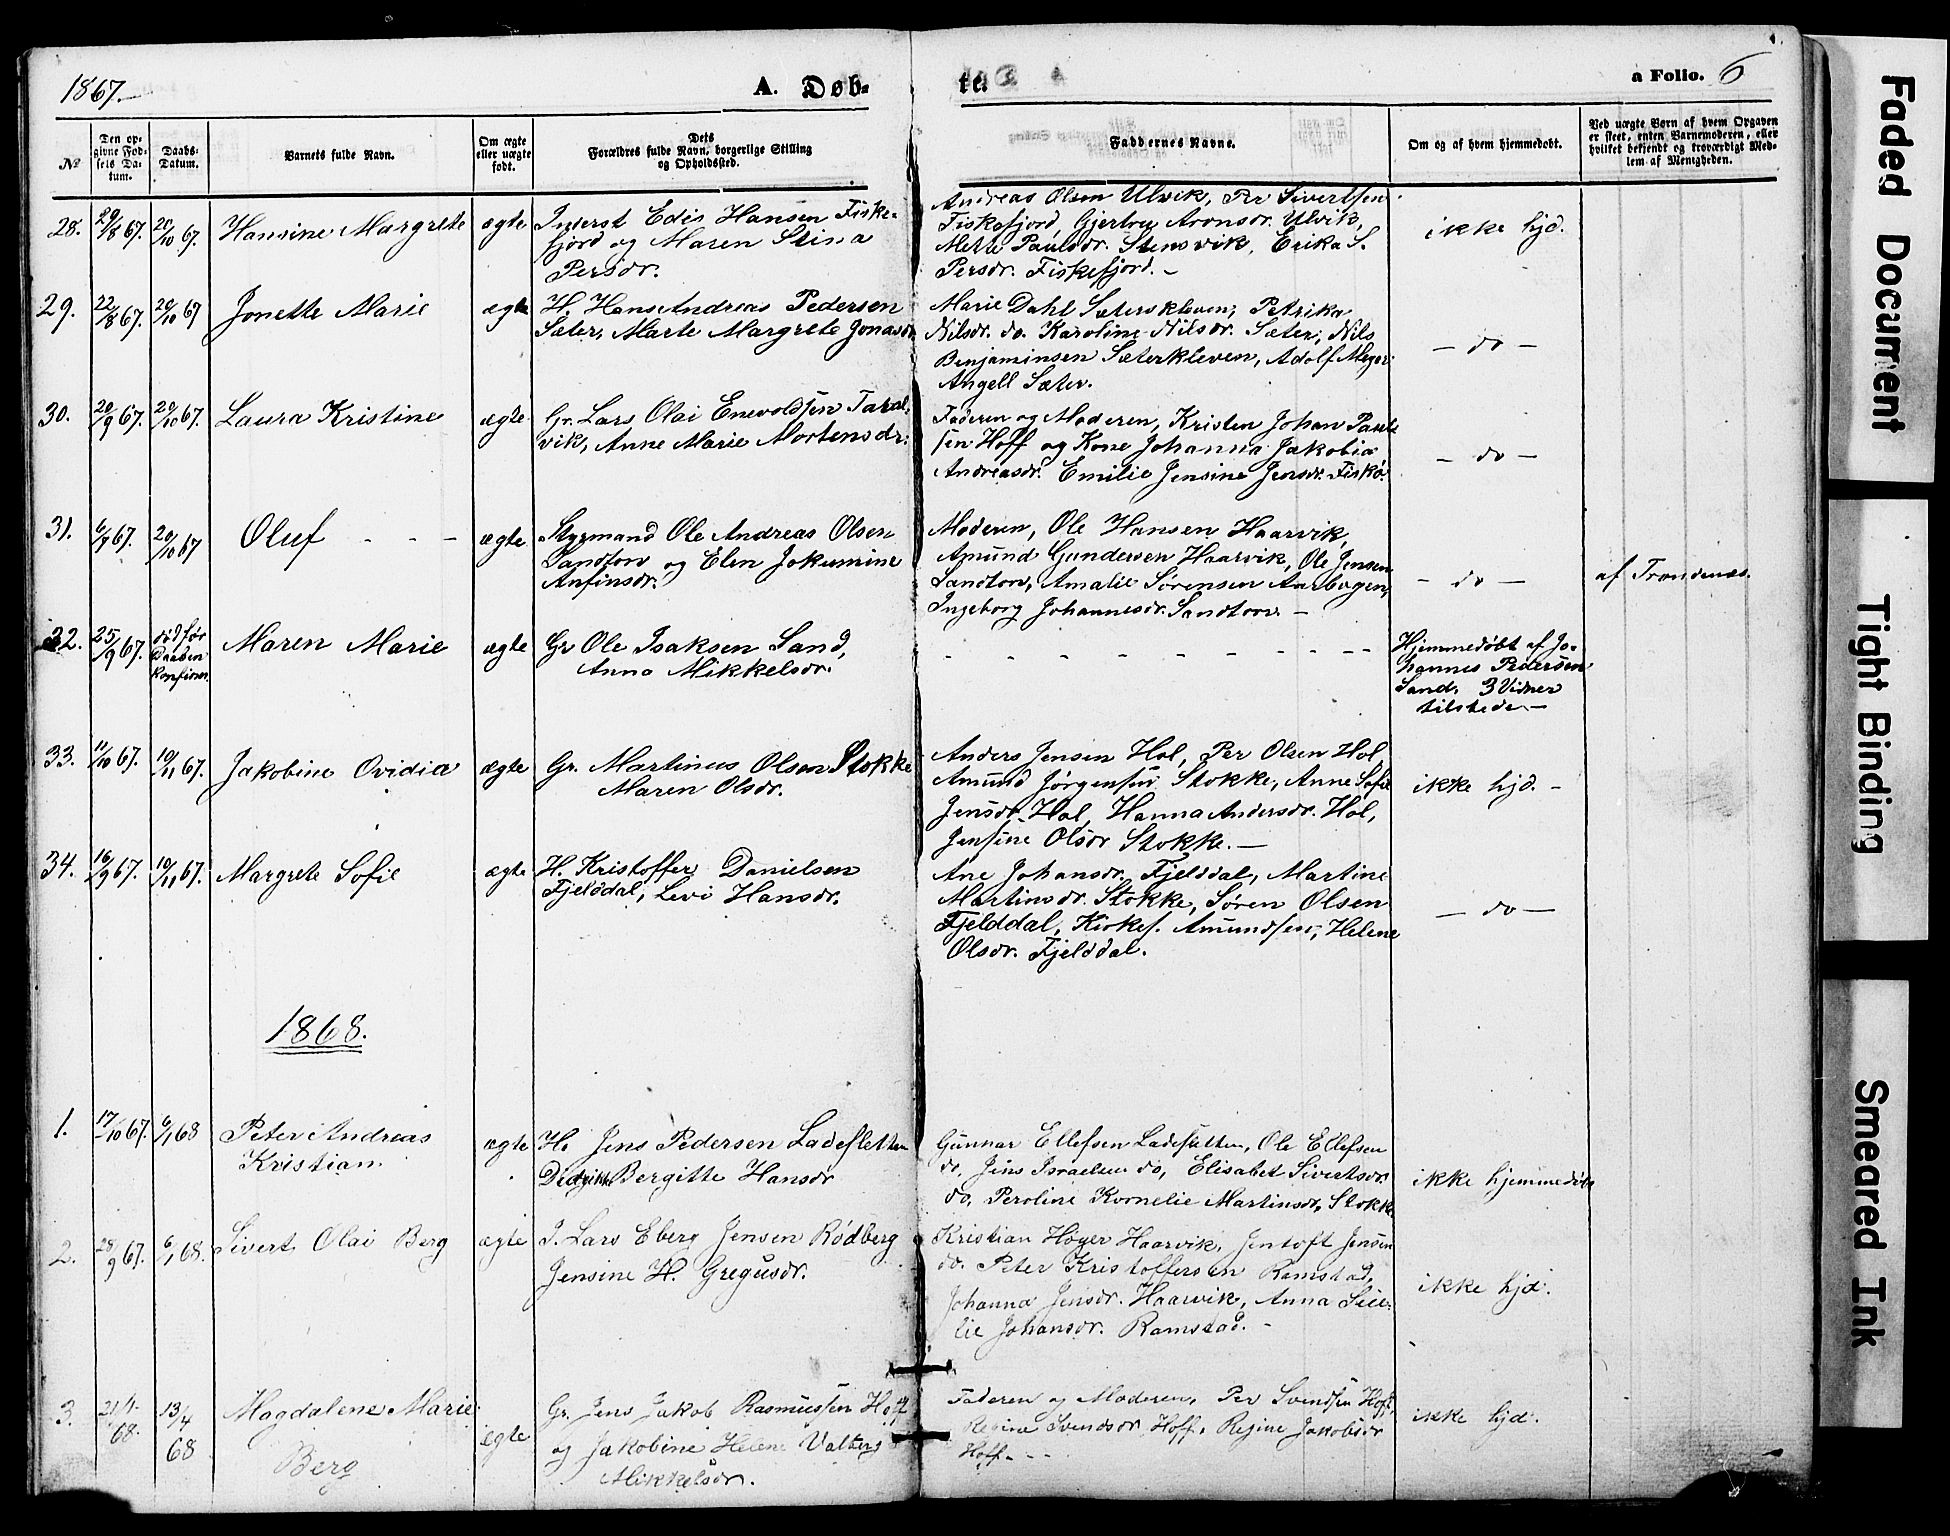 1867.
A. Døb-
te.
a Folio. 6
No
Den op-
givne Fød-
sels Da-
tum.
Daabs-
Datum.
Barnets fulde Navn.
Om ægte
eller uægte
født.
Dets
Forældres fulde Navn, borgerlige Stilling
og Opholdssted.
Faddernes Navne.
Om og af hvem hjemmedøbt.
Ved uægte Børn af hvem Opgaven
er skeet, enten Barnemoderen, eller
hvilket bekjendt og troværdigt Med-
lem af Menigheden.
28.
29/8 67.
20/10 67.
Hansine Margrete
ægte
Inderst Edis Hansen Fiske-
fjord og Maren Stina
Persdr.
Andreas Olsen Ulvik, Per Sivertsen
Fiskefjord, Gjertru Aronsdr. Ulvik,
Mette Paulsdr. Stensvik, Erika S.
Persdr. Fiskefjord. -
ikke hjd.
29.
22/8 67.
20/10 67
Jonette Marie
ægte
H. Hans Andreas Pedersen
Sæter, Marte Margrete Jonasdr
Marie Dahl Sæterskleven, Petrika
Nilsdr. do. Karoline Nilsdr. Sæter, Nils
Benjaminsen Sæterkleven, Adolf Meyer
Angell Sæter.
- do -
30.
20/9 67.
20/10 67.
Laura Kristine
ægte
Gr. Lars Olai Enevoldsen Taral-
vik, Anne Marie Mortensdr.
Faderen og Moderen, Kristen Johan Paul-
sen Hoff og Kone Johanna Jakobia
Andreasdr. Emilie Jensine Jensdr. Fiskø.
- do -
31.
6/7 67.
20/10 67
Oluf - - -
ægte
Styrmand Ole Andreas Olsen
Sandtorv og Elen Jokumine
Anfinsdr.
Moderen, Ole Hansen Haarvik,
Amund Gundersen Haarvik, Ole Jensen
Sandtorv, Amalie Sørensen Aarbogen,
Ingeborg Johannesdr. Sandtorv. -
- do -
af Trondenæs.
32.
25/9 67.
død før
Daaben
konfirm.
Maren Marie
ægte
Gr Ole Isaksen Sand,
Anna Mikkelsdr.
- - - - - - - - -
Hjemmedøbt af Jo-
hannes Pedersen
Sand. 3 Vidner
tilstede. -
33.
11/10 67.
10/11 67.
Jakobine Ovidia
ægte
Gr. Martinus Olsen Stokke
Maren Olsdr.
Anders Jensen Hol, Per Olsen Hol
Amund Jørgensen Stokke, Anne Sofie
Jensdr. Hol, Hanna Andersdr. Hol,
Jensine Olsdr Stokke. -
ikke hjd. -
34.
16/9 67.
10/11 67.
Margrete Sofie
ægte
H. Kristoffer Danielsen
Fjelddal, Levi Hansdr.
Ane Johansdr. Fjelddal, Martine
Martinsdr. Stokke, Søren Olsen
Fjelddal, Kirkes. Amundsen, Helene
Olsdr. Fjelddal.
- do -
1868.
1.
17/10 67.
6/1 68
Peter Andreas
Kristian
ægte
H. Jens Pedersen Ladesletten
Bergitte Hansdr
Gunnar Ellefsen Ladesletten, Ole Ellefsen
do. Jens Israelsen do, Elisabet Sivertsdr.
do. Peroline Kornelie Martinsdr, Stokke
ikke hjemmedøbt
2.
28/9 67.
6/1 68.
Sivert Olai Berg
ægte
I. Lars Eberg Jensen Rødberg
Jensine H. Gregusdr.
Kristian Høyer Haarvik, Jentoft Jensen
do. Peter Kristoffersen Ramstad,
Johanna Jensdr. Haarvik, Anna
Johansdr. Ramstad. -
ikke hjd.
3.
21/1 68.
13/4 68
Magdalene Marie
Berg
ægte
Gr. Jens Jakob Rasmussen Hoff
og Jakobine Helene Valberg
Mikkelsdr.
Faderen og Moderen, Per Svendsen Hoff,
Regina Svendsdr Hoff, Regine Jakobsdr
Hoff. - -
ikke hjd.
Faded Document
Tight Binding
Smeared Ink